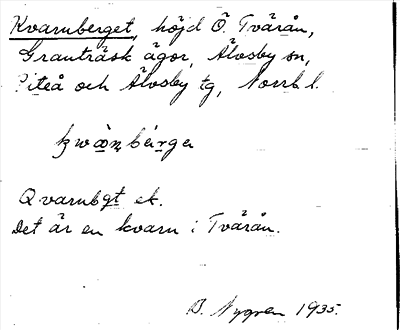 Kvarnberget, höjd Ö. Tvärån,
Granträsk ägor, Älvsby sn,
Piteå och Älvsby tg, Norrb. l.
Qvarnbgt ek.
Det är en kvarn i Tvärån.
B. Nygren 1935.